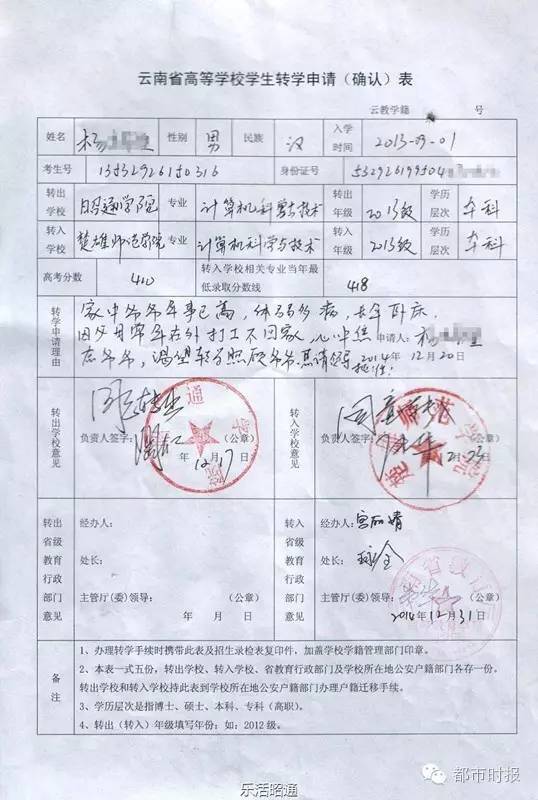 云南省高等学校学生转学申请（确认）表
云教学籍 号
姓名 杨 性别 男 民族 汉 入学时间 2013-09-01
考生号 13532926150316 身份证号 532926199504
转出学校 昭通学院 专业 计算机科学与技术 转出年级 2013级 学历层次 本科
转入学校 楚雄师范学院 专业 计算机科学与技术 转入年级 2013级 学历层次 本科
高考分数 410 转入学校相关专业当年最低录取分数线 418
转学申请理由
家中爷爷年事已高，体弱多病，长年卧床
因父母常年在外打工不回家，心中焦
虑爷爷，渴望转学照顾爷爷，恳请领导
批准！
申请人：杨
2014年12月20日
转出学校意见
同意转出
负责人签字： （公章）
年 12月17日
转入学校意见
同意
负责人签字： （公章）
12月23日
转出省级教育行政部门意见
经办人：
处长：
主管厅(委)领导： （公章）
年 月 日
转入省级教育行政部门意见
经办人：
处长：
主管厅(委)领导： （公章）
2014年12月31日
备注
1、办理转学手续时携带此表及招生录检表复印件，加盖学校学籍管理部门印章。
2、本表一式五份，转出学校、转入学校、省教育行政部门及学校所在地公安户籍部门各存一份。
转出学校和转入学校持此表到学校所在地公安户籍部门办理户籍迁移手续。
3、学历层次是指博士、硕士、本科、专科（高职）。
4、转出（转入）年级填写年份：如：2012级。
都市时报
乐活昭通